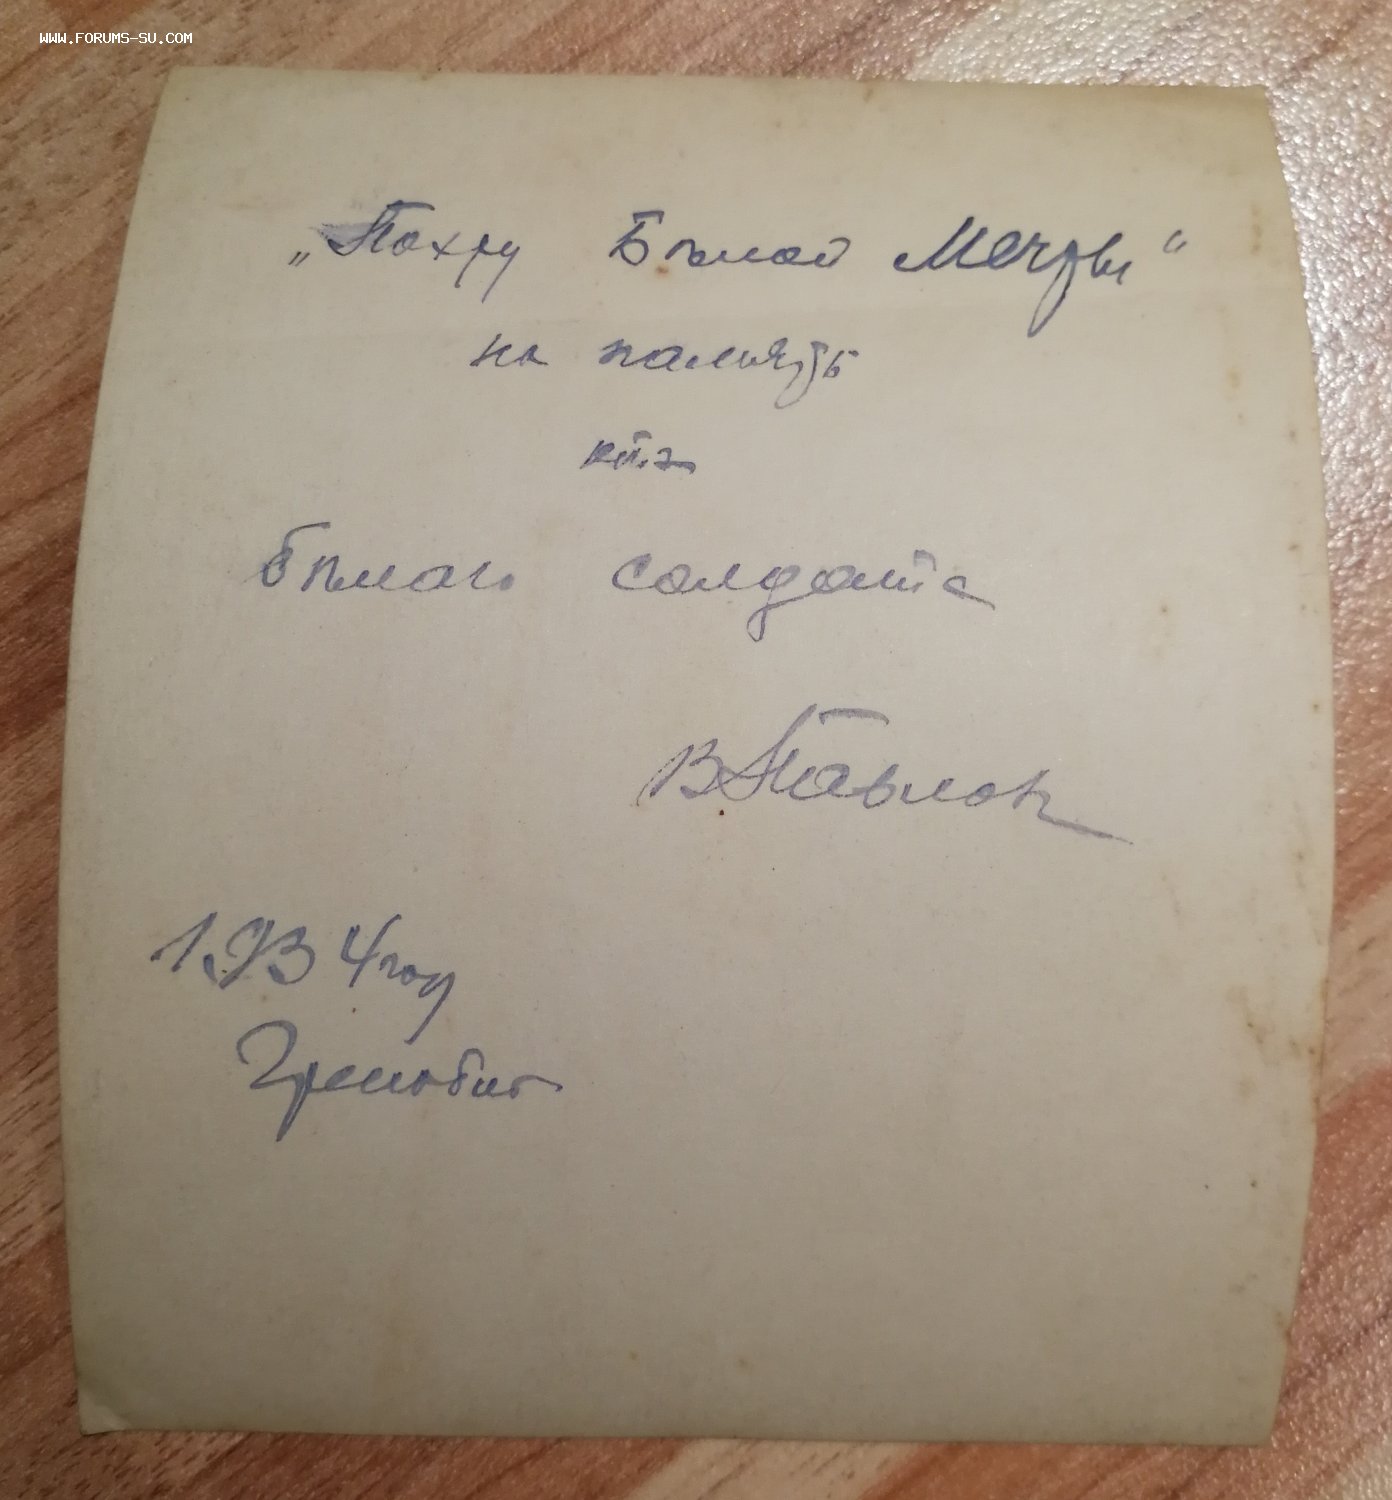 WWW.FORUMS-SU.COM
„Поэту Бѣлой Мечты“
на память
отъ
бѣлаго солдата
В Павлов
1934 году
Гренобль